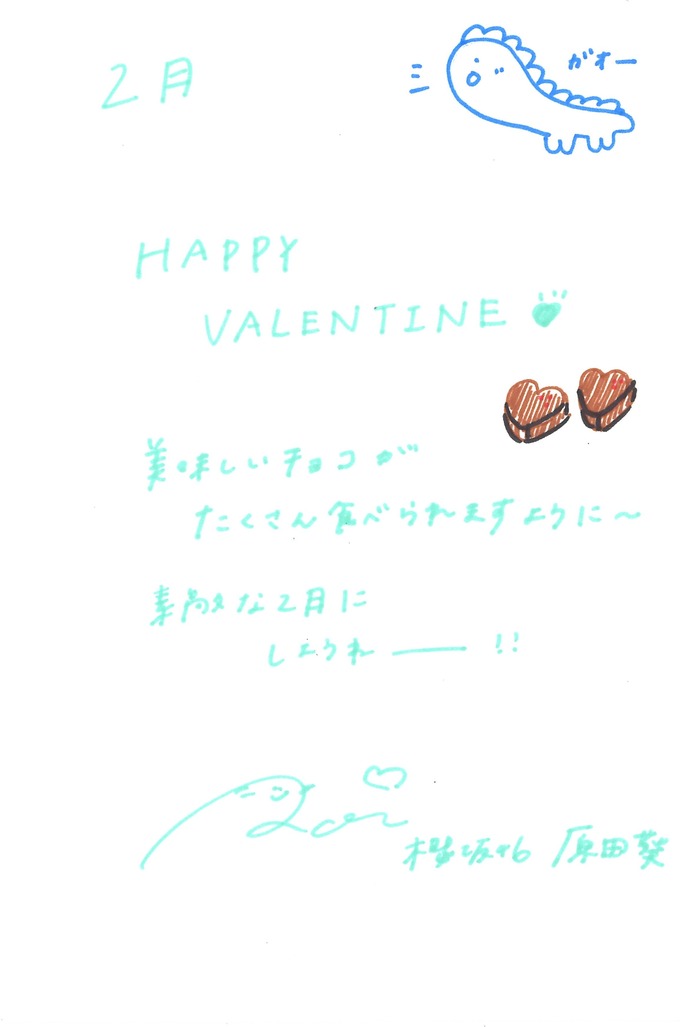 2月
がオー
HAPPY
VALENTINE
美味しいチョコが
たくさん食べられますように〜
素敵な2月に
しようね——!!
欅坂46 原田葵